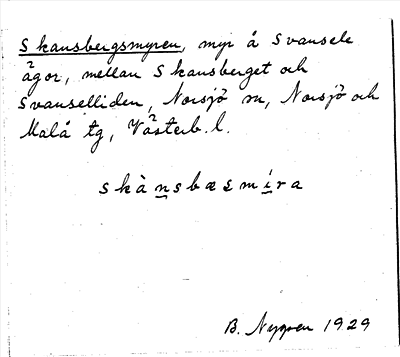 Skansbergsmyren, myr å Svansele
ägor, mellan Skansberget och
Svanselliden, Norsjö sn, Norsjö och
Malå tg, Västerb. l.
skànsbæsmíra
B. Nygren 1929